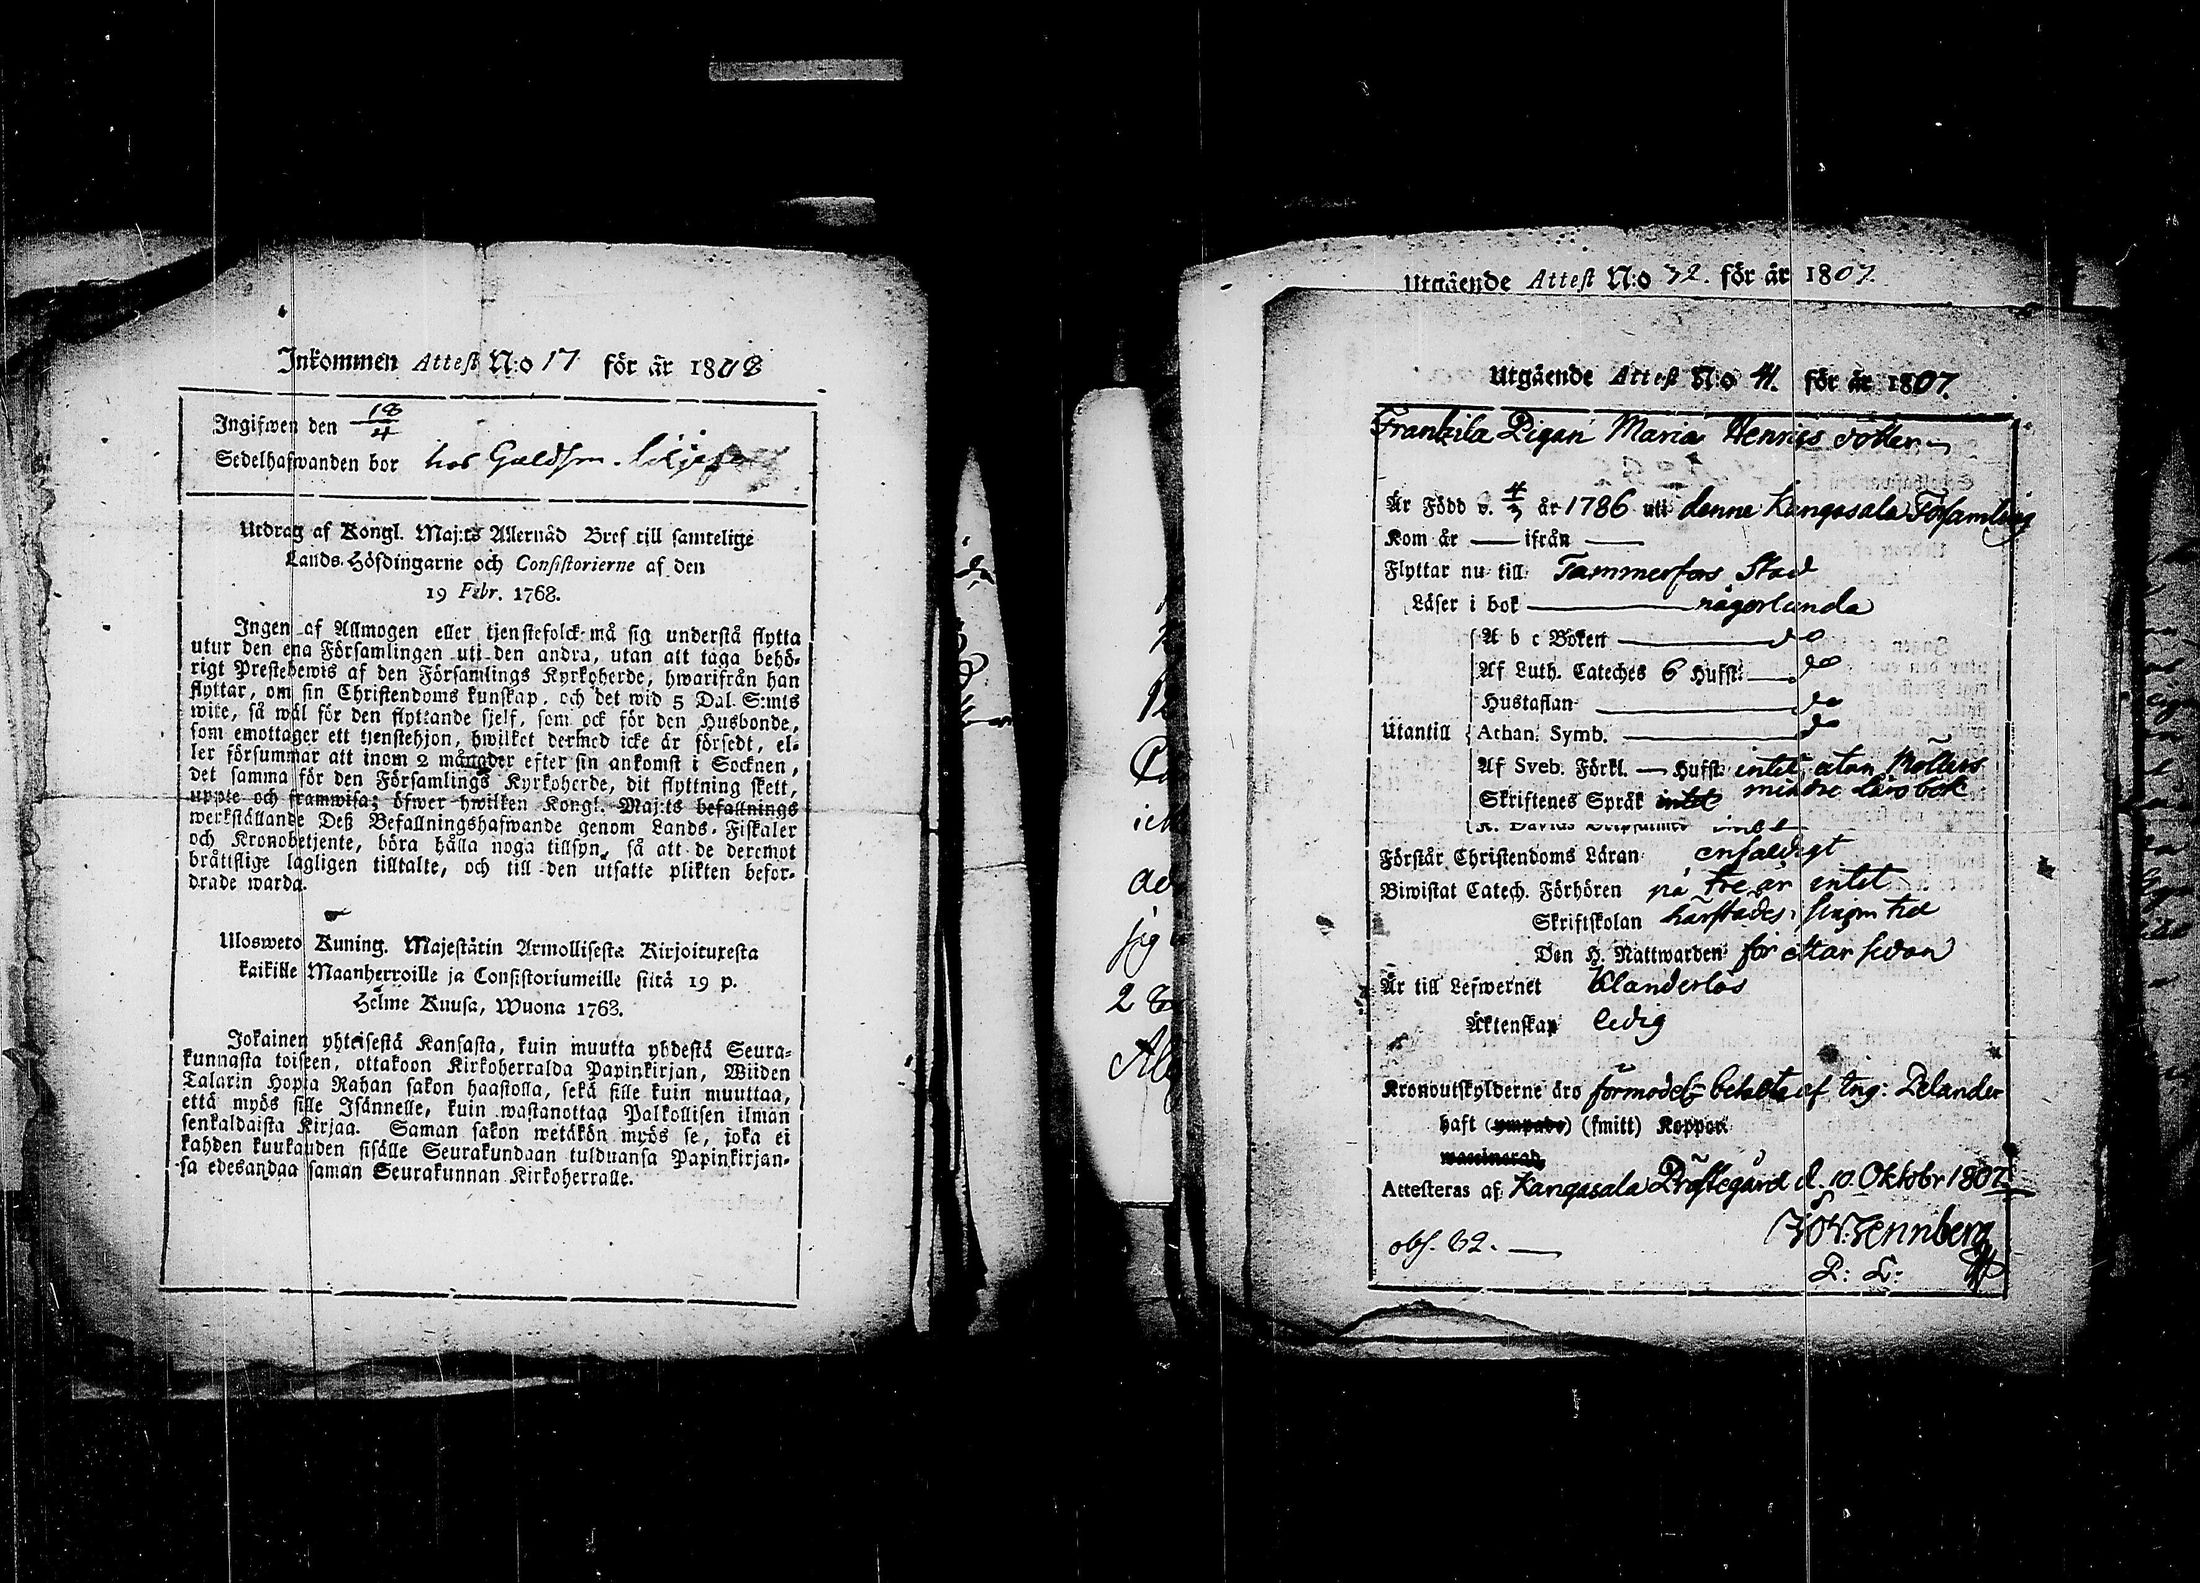 Inkommen Attest N:o 17 för år 1808
Ingifwen den 18/4
Sedelhafwanden bor hos Guldsm.
Utdrag af Kongl. Maj:ts Allernåd Bref till samtelige
Lands-Höfdingarne och Consistorierne af den
19 Febr. 1768.
Ingen af Allmogen eller tjenstefolck må sig understå flytta
utur den ena Församlingen uti den andra, utan att taga behö-
rigt Prestebewis af den Församlings Kyrkoherde, hwarifrån han
flyttar, om sin Christendoms kunskap, och det wid 5 Dal. S:mts
wite, så wäl för den flyttande sjelf, som ock för den Husbonde,
som emottager ett tjenstehjon, hwilket dermed icke är försedt, el-
ler försummar att inom 2 månader efter sin ankomst i Socknen,
det samma för den Församlings Kyrkoherde, dit flyttning skett,
uppte och framwisa; öfwer hwilken Kongl. Maj:ts befallnings
werkställande Deß Befallningshafwande genom Lands-Fiskaler
och Kronobetjente, böra hålla noga tillsyn, så att de deremot
bråttslige lagligen tilltalte, och till den utsatte plikten befor-
drade warda.
Ulosweto Kuning. Majestätin Armollisesta Kirjoituxesta
kaikille Maanherroille ja Consistoriumeille siitä 19 p.
Helme Kuusa, Wuona 1768.
Jokainen yhteisestä Kansasta, kuin muutta yhdestä Seura-
kunnasta toiseen, ottakoon Kirkoherralda Papinkirjan, Wiiden
Talarin Hopia Rahan sakon haastolla, sekä sille kuin muuttaa,
että myös sille Isännelle, kuin wastanottaa Palkollisen ilman
senkaldaista Kirjaa. Saman sakon wetäkön myös se, joka ei
kahden kuukauden sisälle Seurakundaan tulduansa Papinkirjan-
sa edesandaa saman Seurakunnan Kirkoherralle.
Utgående Attest N:o 32. för år 1807.
Utgående Attest N:o 41. för år 1807.
Frankila Pigan Maria Henrics dotter
Är Född d. 4/3 år 1786 uti denne Kangasala Församling
Kom år — ifrån —
Flyttar nu till Tammerfors Stad
Läser i bok — någorlunda
A b c Boken — do
Af Luth. Cateches 6 Hufst: — do
Hustaflan — do
Utantill Athan. Symb. — do
Af Sveb. Förkl. — Hufst: intet utan Möllers
Skriftenes Språk intet mindre Läro bok
K. Davids Botpsalmer intet
Förstår Christendoms Läran enfaldigt
Biwistat Catech. Förhören på tre år intet
Skriftskolan härstädes i sinom tid
Den H. Nattwarden för åtta sedan
Är till Lefwernet Klanderlös
Äktenskap ledig
Kronoutskylderne äro förmodel: betalta af
haft (ympade) (smitt) Koppor.
waccinerad.
Attesteras af Kangasala Prästegård d. 10 Oktobr 1807
obs. 62. —